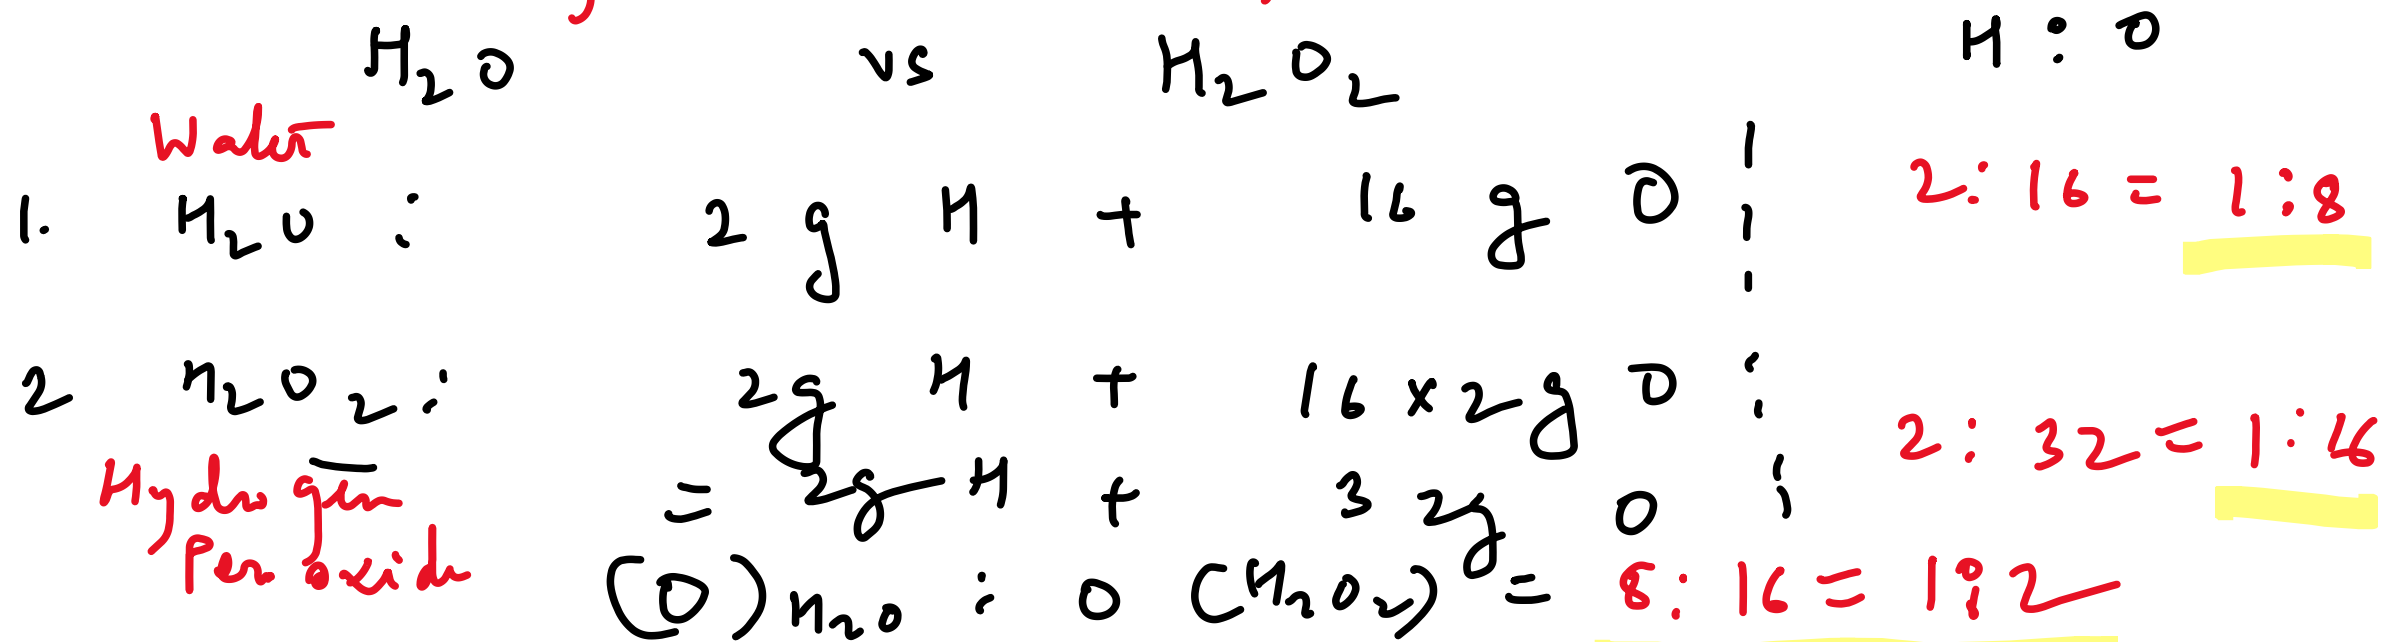 H₂O vs H₂O₂ H : O
Water
1. H₂O : 2 g H + 16 g O 2 : 16 = 1 : 8
2 H₂O₂ : 2g H + 16 x 2 g O
2 : 32 = 1 : 16
Hydrogen = 2g H + 32g O
Peroxide (O) H₂O : O (H₂O₂) = 8 : 16 = 1 : 2